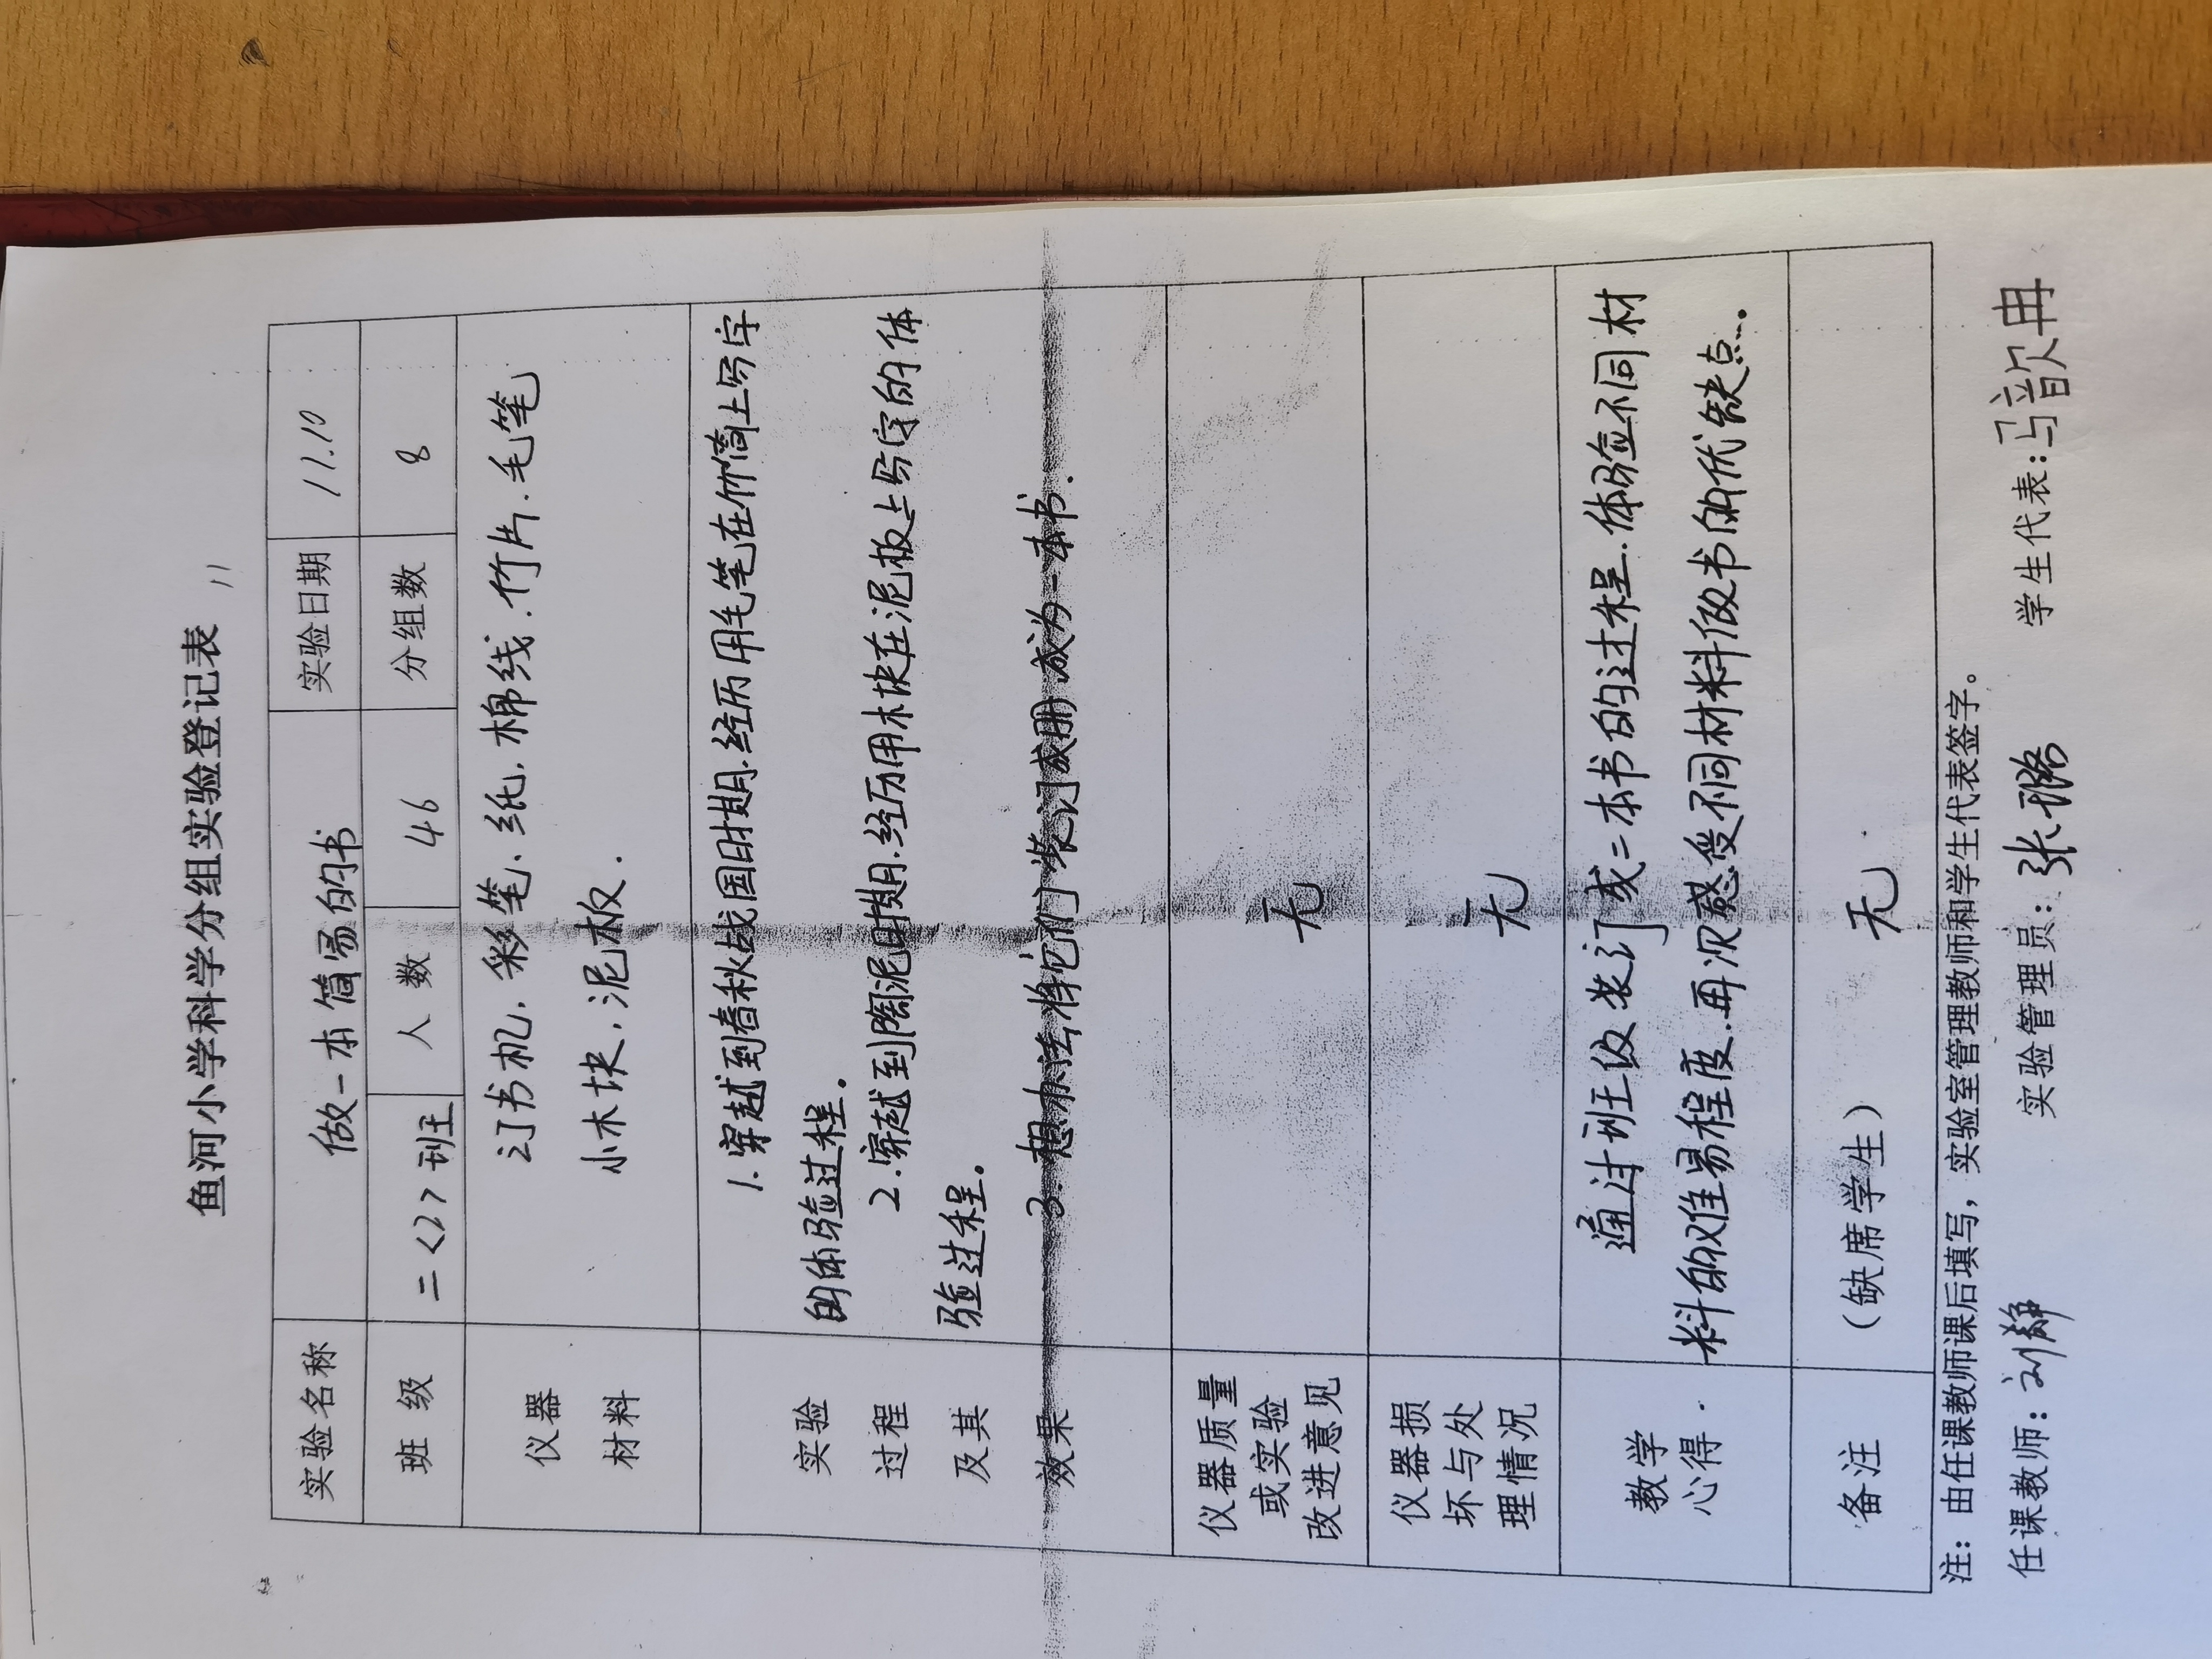 鱼河小学科学分组实验登记表 11
实验名称 做一本简易的书 实验日期 11.10
班 级 二<2>班 人 数 46 分组数 8
仪器材料 订书机、彩笔、纸、棉线、竹片、毛笔
小木块、泥板.
实验过程及其效果
1.穿越到春秋战国时期.经历用毛笔在竹简上写字
的体验过程.
2.穿越到陶泥时期.经历用木块在泥板上写字的体
验过程.
3.想办法将它们装订成册成为一本书.
仪器质量或实验改进意见 无
仪器损坏与处理情况 无
教学心得
通过班级装订成=本书的过程.体验不同材
料的难易程度.再次感受不同材料做书的优缺点.
备注 (缺席学生) 无
注：由任课教师课后填写，实验室管理教师和学生代表签字。
任课教师：刘静 实验管理员：张璐 学生代表：马歆冉